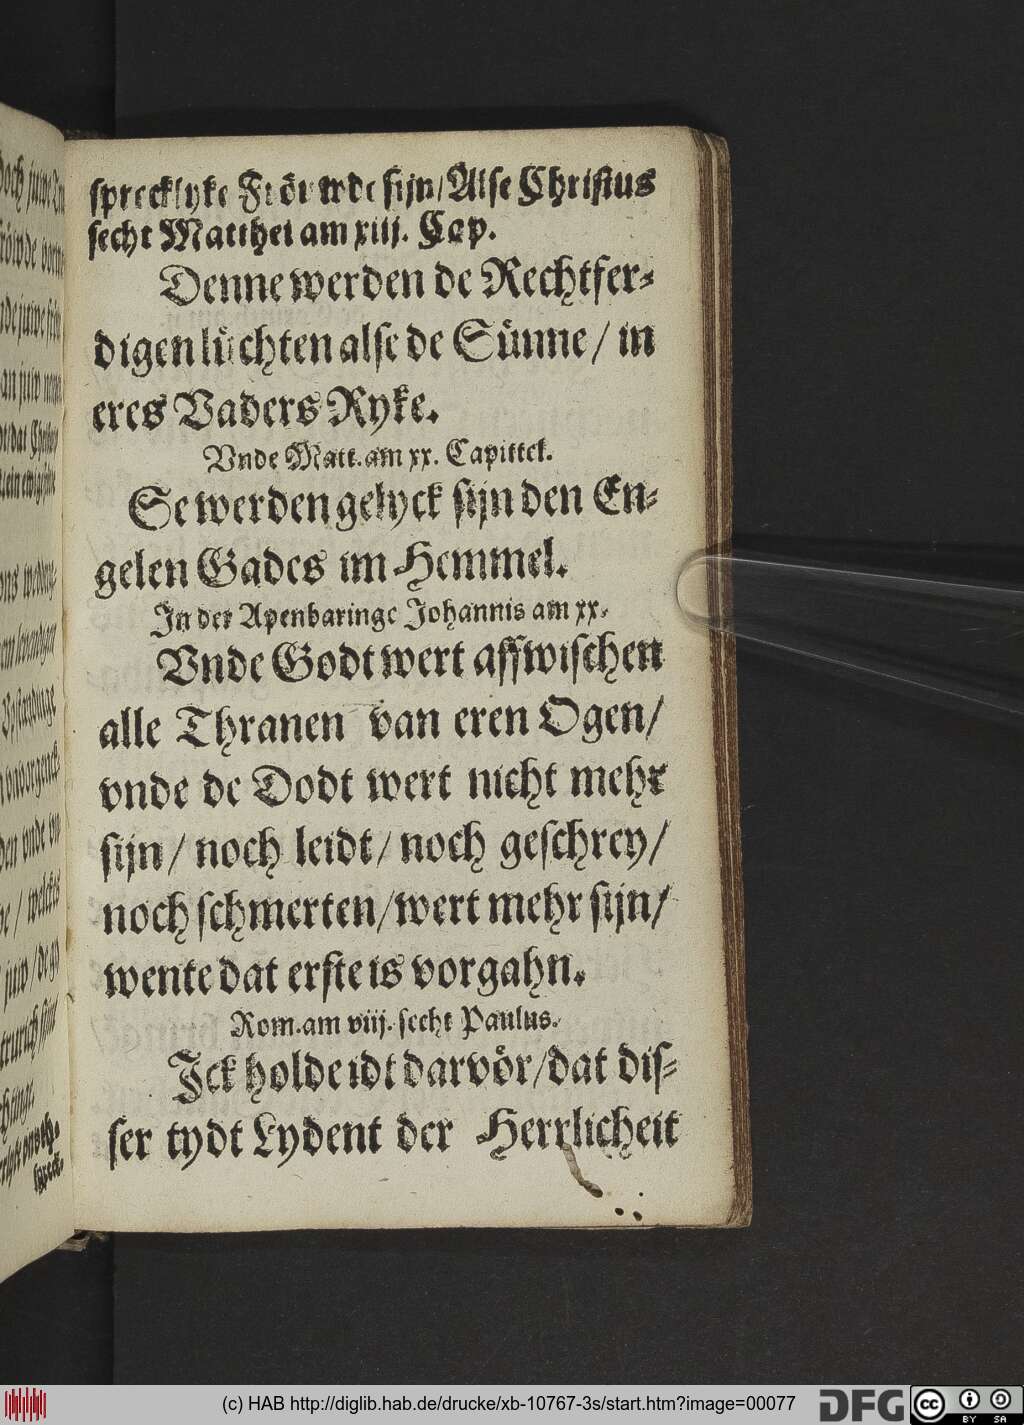 sprecklyke Fröuwde sijn/ Alse Christus
secht Matthei am xiij. Cap.
Denne werden de Rechtfer-
digen lüchten alse de Sünne/ in
eres Vaders Ryke.
Vnde Matt. am xx. Capittel.
Se werden gelyck sijn den En-
gelen Gades im Hemmel.
In der Apenbaringe Johannis am xx.
Vnde Godt wert affwischen
alle Thranen van eren Ogen/
vnde de Dodt wert nicht mehr
sijn/ noch leidt/ noch geschrey/
noch schmerten/ wert mehr sijn/
wente dat erste is vorgahn.
Rom. am viij. secht Paulus.
Ick holde idt darvör/ dat dis-
ser tydt Lydent der Herrlicheit
(c) HAB http://diglib.hab.de/drucke/xb-10767-3s/start.htm?image=00077
DFG
cc
BY SA